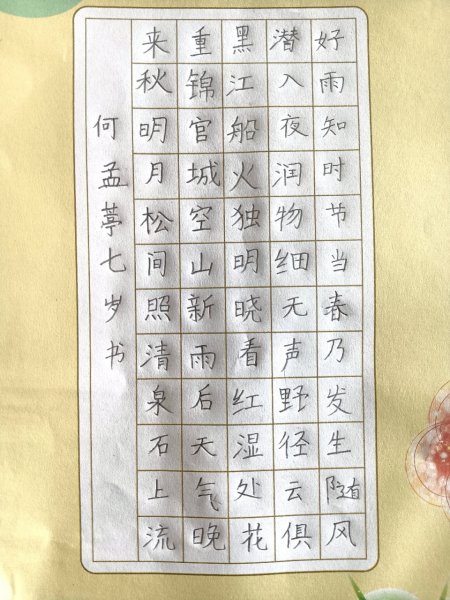 好雨知时节当春乃发生随风
潜入夜润物细无声野径云俱
黑江船火独明晓看红湿处花
重锦官城空山新雨后天气晚
来秋明月松间照清泉石上流
何孟葶七岁书